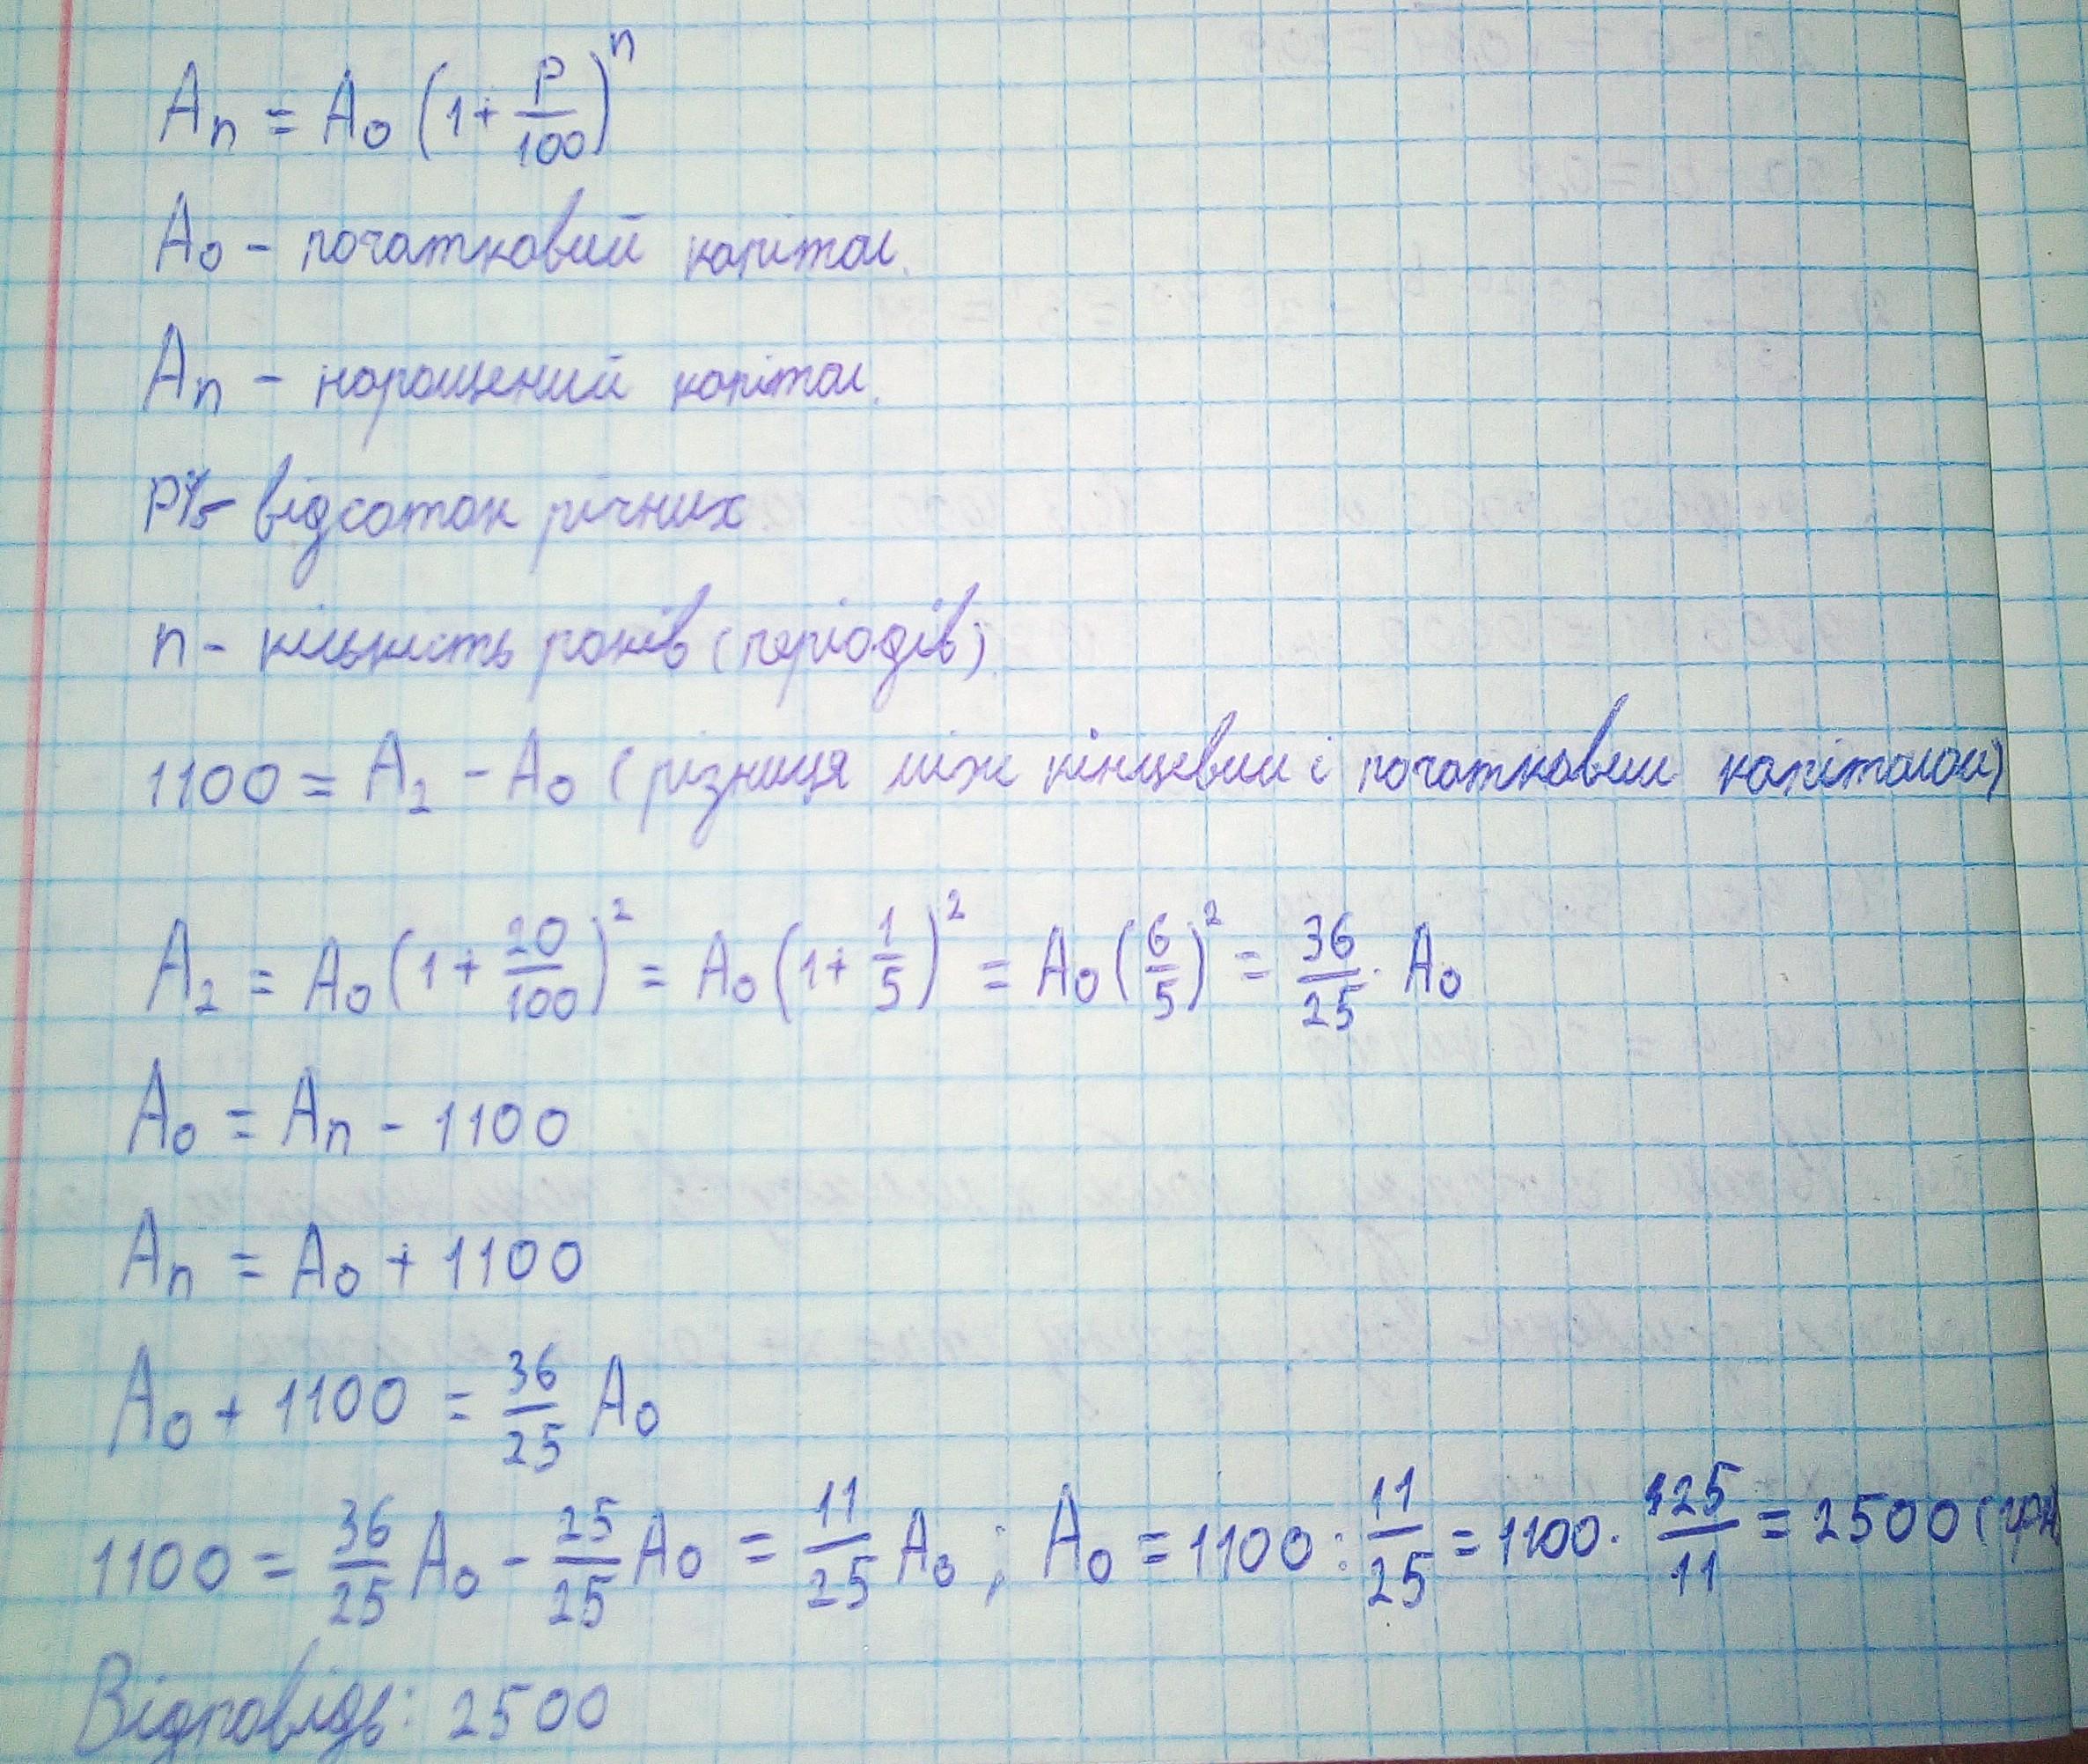 Aₙ = A₀ (1 + P/100)ⁿ
A₀ - початковий капітал.
Aₙ - нарощений капітал.
P% - відсоток річних
n - кількість років (періодів)
1100 = A₂ - A₀ (різниця між кінцевим і початковим капіталом)
A₂ = A₀ (1 + 20/100)² = A₀ (1 + 1/5)² = A₀ (6/5)² = 36/25 · A₀
A₀ = Aₙ - 1100
Aₙ = A₀ + 1100
A₀ + 1100 = 36/25 A₀
1100 = 36/25 A₀ - 25/25 A₀ = 11/25 A₀ ; A₀ = 1100 : 11/25 = 1100 · 125/11 = 2500 (грн
Відповідь: 2500